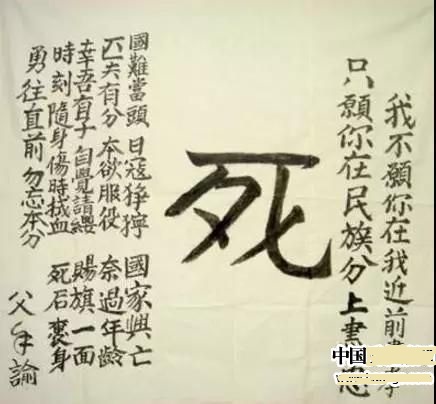 我不願你在我近前盡孝
只願你在民族分上盡忠
死
國難當頭 日寇猙獰 國家興亡
匹夫有分 本欲服役 奈過年齡
幸吾有子 自覺請纓 賜旗一面
時刻隨身 傷時拭血 死后裹身
勇往直前 勿忘本分
父手諭
中国